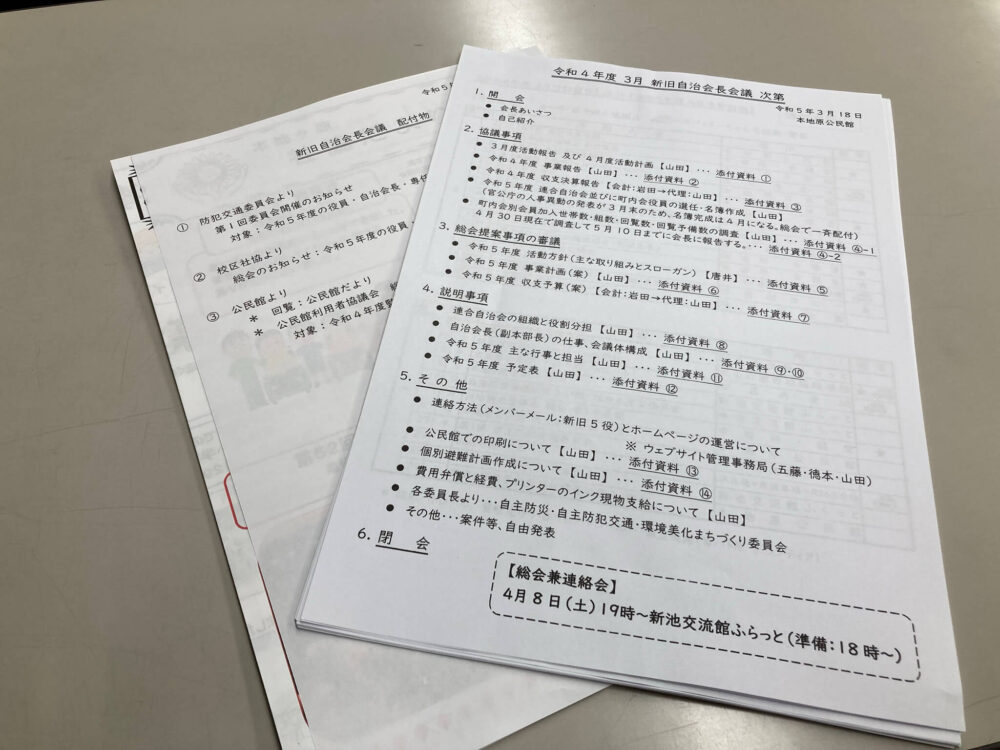 令和4年度 3月 新旧自治会長会議 次第
令和5年3月18日
本地原公民館
1. 開 会
● 会長あいさつ
● 自己紹介
2. 協議事項
● 3月度活動報告 及び 4月度活動計画【山田】・・・添付資料 ①
● 令和4年度 事業報告【山田】・・・添付資料 ②
● 令和4年度 収支決算報告【会計:岩田→代理:山田】・・・添付資料 ③
● 令和5年度 連合自治会並びに町内会役員の選任・名簿作成【山田】
(官公庁の人事異動の発表が3月末のため、名簿完成は4月になる。総会で一斉配付)
● 町内会別会員加入世帯数・組数・回覧数・回覧予備数の調査【山田】・・・添付資料 ④-1
4月30日現在で調査して5月10日までに会長に報告する。・・・添付資料 ④-2
3. 総会提案事項の審議
● 令和5年度 活動方針(主な取り組みとスローガン)【唐井】・・・添付資料 ⑤
● 令和5年度 事業計画(案)【山田】・・・添付資料 ⑥
● 令和5年度 収支予算(案)【会計:岩田→代理:山田】・・・添付資料 ⑦
4. 説明事項
● 連合自治会の組織と役割分担【山田】・・・添付資料 ⑧
● 自治会長(副本部長)の仕事、会議体構成【山田】・・・添付資料 ⑨・⑩
● 令和5年度 主な行事と担当【山田】・・・添付資料 ⑪
● 令和5年度 予定表【山田】・・・添付資料 ⑫
5. そ の 他
● 連絡方法(メンバーメール:新旧5役)とホームページの運営について
※ ウェブサイト管理事務局(五藤・徳本・山田)
● 公民館での印刷について【山田】・・・添付資料 ⑬
● 個別避難計画作成について【山田】・・・添付資料 ⑭
● 費用弁償と経費、プリンターのインク現物支給について【山田】
● 各委員長より・・・自主防災・自主防犯交通・環境美化まちづくり委員会
● その他・・・案件等、自由発表
6. 閉 会
【総会兼連絡会】
4月8日(土)19時~新池交流館ふらっと(準備:18時~)
令和5
新旧自治会長会議 配付物
① 防犯交通委員会より
第1回委員会開催のお知らせ
対象:令和5年度の役員・自治会長・専任
② 校区社協より
総会のお知らせ:令和5年度の役員
③ 公民館より
* 回覧:公民館だより
* 公民館利用者協議会
対象:令和4年度